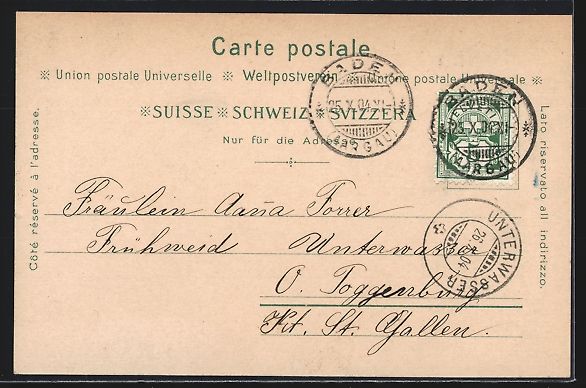 Carte postale.
※ Union postale Universelle ※ Weltpostverein ※ Unione postale Universale ※
※ SUISSE ※ SCHWEIZ ※ SVIZZERA
Nur für die Adresse.
Côté réservé à l'adresse.
Lato riservato all indirizzo.
BADEN
25.X.04.XI-1
(AARGAU)
BADEN
25.X.04.XI-1
(AARGAU)
UNTERWASSER
26 04
Fräulein Anna Forrer
Frühweid Unterwasser
O. Toggenburg
Kt. St. Gallen.